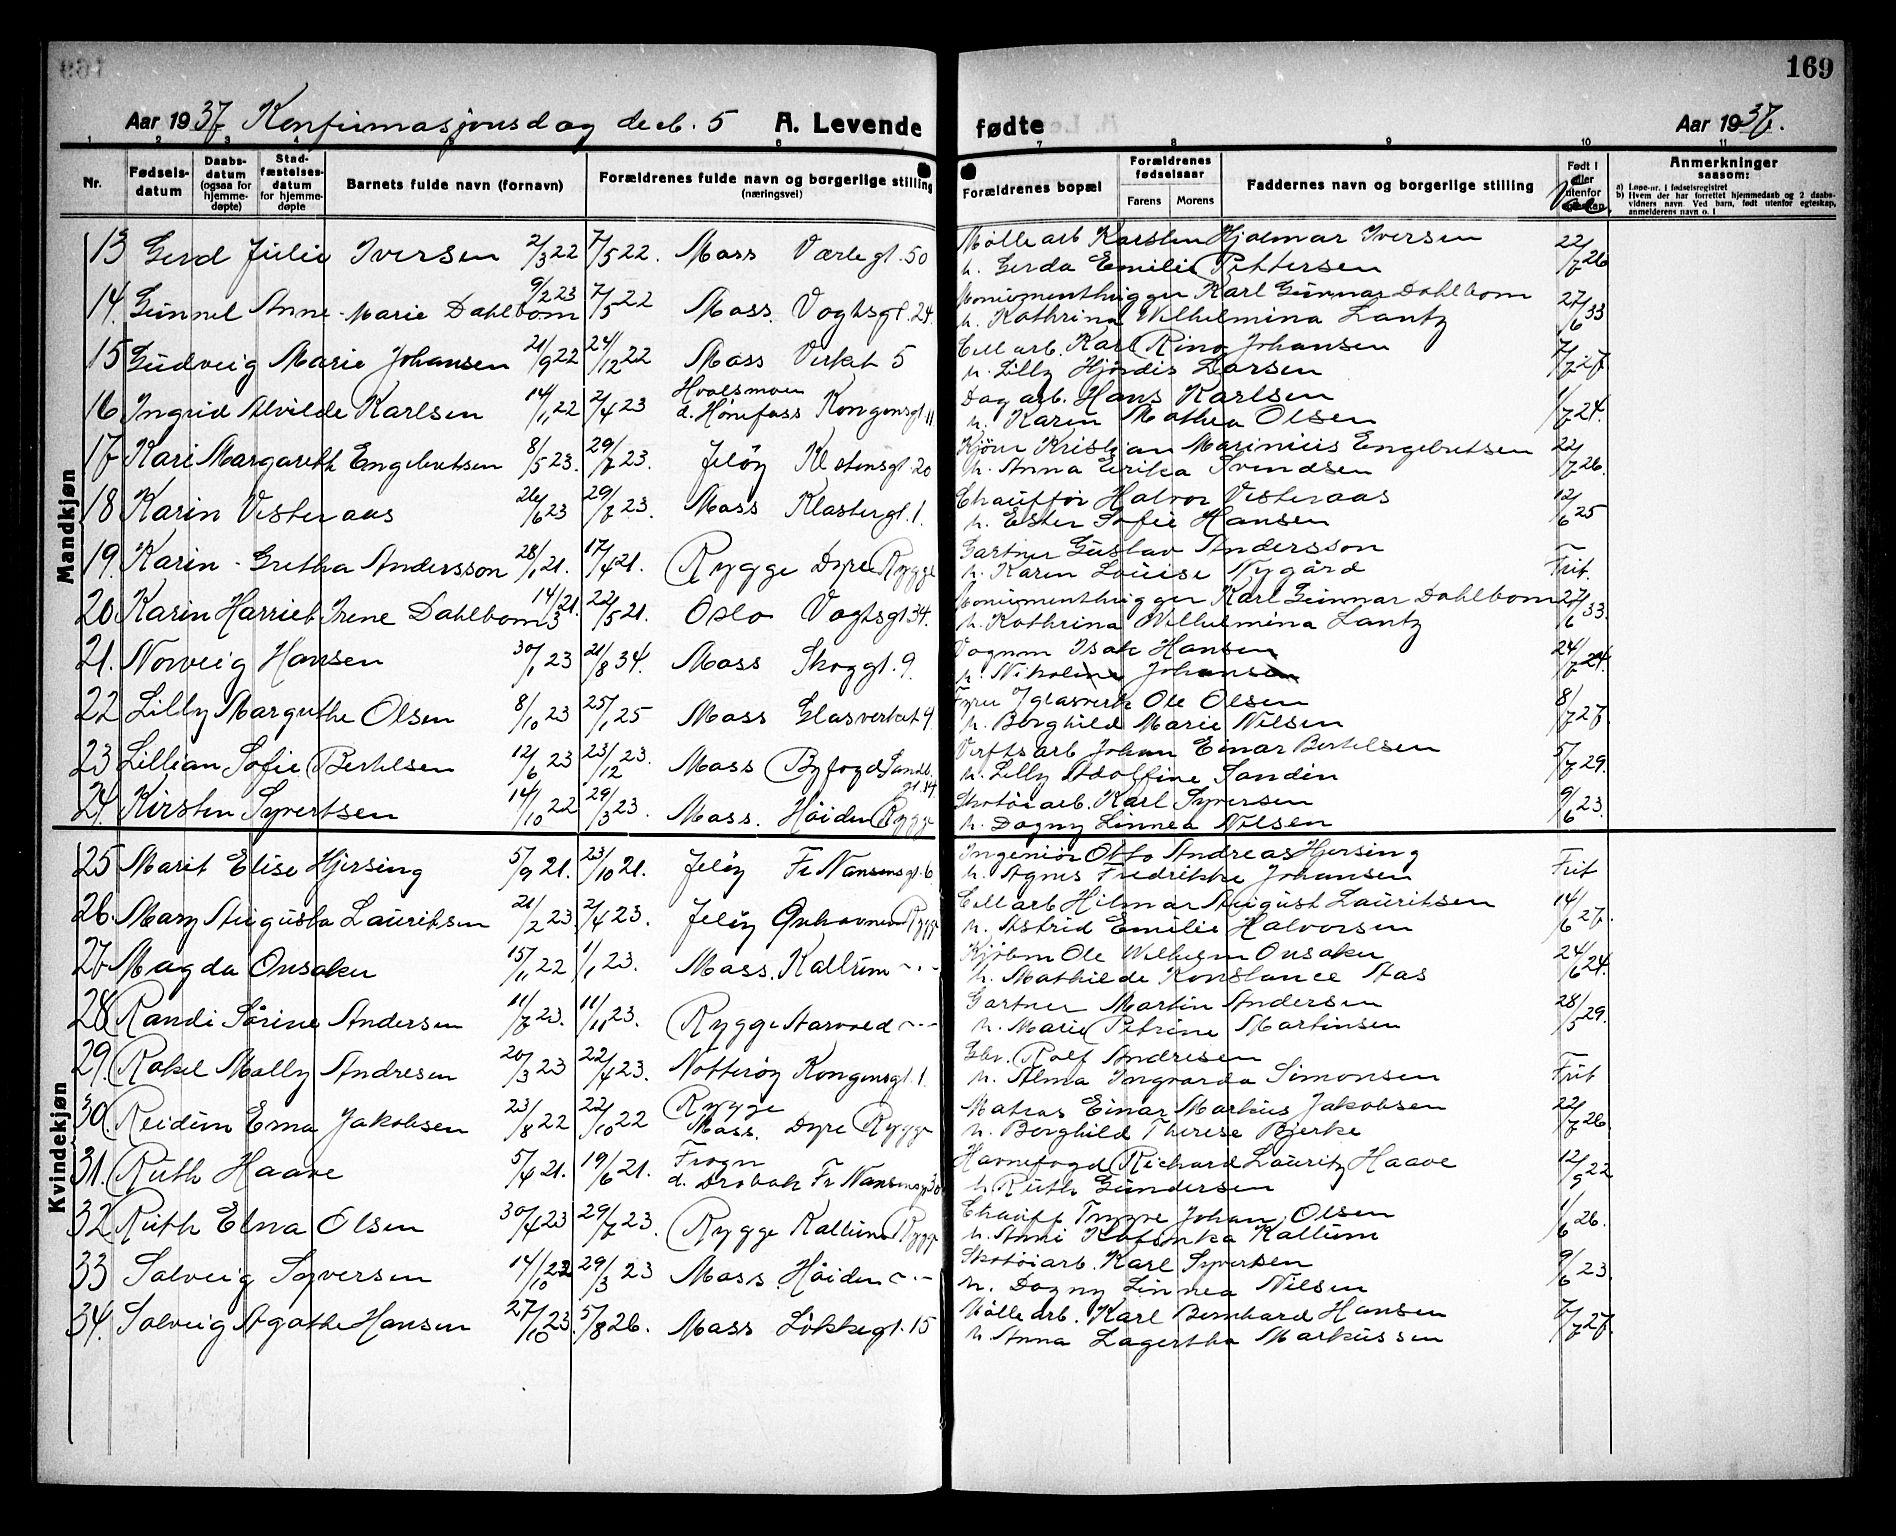 169
Aar 1937. Konfirmasjonsdag decb. 5 A. Levende fødte Aar 1937.
1 2 3 4 5 6 7 8 9 10 11
Nr. Fødsels-datum Daabs-datum (ogsaa for hjemme-døpte) Stad-fæstelses-datum for hjemme-døpte Barnets fulde navn (fornavn) Forældrenes fulde navn og borgerlige stilling (næringsvei) Forældrenes bopæl Forældrenes fødselsaar Farens Morens Faddernes navn og borgerlige stilling Født i eller utenfor Anmerkninger saasom:
a) Løpe-nr. i fødselsregistret
b) Hvem der har forrettet hjemmedaab og 2 daabs-vidners navn. Ved barn, født utenfor egteskap, anmelderens navn o. l
Mandkjøn
13 Gerd Julie Iversen 2/3 22 7/5 22. Moss Værlegt. 50 Møllearb Karsten Hjalmar Iversen 22/7 26
h. Gerda Emilie Pettersen
14. Gunnel Anne-Marie Dahlbom 9/2 23 7/5 22 Moss. Vogtsgt. 24. Monumenthugger Karl Gunnar Dahlbom 27/6 33
h. Kathrina Wilhelmina Lantz
15 Gudveig Marie Johansen 21/9 22 24/12 22 Moss Verket 5 Cell arb. Karl Ring Johansen 7/7 27.
h. Lilly Hjørdis Larsen
16 Ingrid Alvilde Karlsen 14/1 22 2/4 23 Hvalsmoen d. Hønefoss Kongensgt. 11 Dagarb. Hans Karlsen 1/7 24.
h. Karen Mathea Olsen
17 Kari Margareth Engebretsen 8/5 23. 29/7 23. Jeløy Klostersgt. 20 Kjøm Kristian Marinius Engebretsen 22/7 26.
h. Anna Erika Svendsen
18 Karin Vesteraas 26/6 23 29/7 23. Moss Klostergt. 1. Chauffør Halvor Vesteraas 12/6 25
h. Ester Sofie Hansen
19. Karin-Gretha Andersson 28/1 21. 17/4 21. Rygge Dyre Rygge Gartner Gustav Andersson Frit.
h. Karen Louise Nygård
20 Karin Harriet Irene Dahlbom 14/3 21. 22/5 21. Oslo Vogtsgt 34. Monumenthugger Karl Gunnar Dahlbom 27/6 33
h. Kathrina Wilhelmina Lantz
21. Norveig Hansen 30/1 23 21/8 34. Moss Skoggt. 9. Vognm Isak Hansen 24/7 24.
h. Nikoline Johansen
22 Lilly Margrethe Olsen 8/10 23 25/1 25 Moss Glasverket 4 Fyrb. v/glasverk Ole Olsen 8/7 27.
h. Borghild Marie Nilsen
23 Lillian Sofie Bertelsen 12/6 23 23/12 23. Moss Byfogd Sandb. gt. 14 Verftsarb Johan Einar Bertelsen 5/7 29.
h. Lilly Adolfine Sandin
24. Kirsten Syvertsen 14/10 22 29/3 23. Moss. Høiden Rygge Skotøiarb. Karl Syversen 9/6 23.
h. Dagny Linnea Nilsen
Kvindekjøn
25 Marit Elise Hjersing 5/9 21. 23/10 21. Jeløy Fr. Nansensgt. 6 Ingeniør Otto Andreas Hjersing Frit
h. Agnes Fredrikke Johansen
26. Mary Augusta Lauritsen 21/2 23. 2/4 23. Jeløy Rygge Cellarb Hilmar August Lauritsen 14/6 27.
h. Astrid Emilie Halvorsen
27 Magda Onsaker 15/1 22 1/1 23. Moss. Kallum -"- Kjøbm Ole Wilhelm Onsaker 24/6 24.
h. Mathilde Konstance Aas
28 Randi Sørine Andersen 11/7 23. 11/11 23. Rygge Aarvold -"- Gartner Martin Andersen 28/5 29.
h. Marie Petrine Martinsen
29. Rakel Molly Andresen 20/3 23 22/4 23. Nøtterøy Kongensgt. 1. Gbr. Rolf Andresen Frit
h. Alma Ingvarda Simonsen
30 Reidun Erna Jakobsen 23/8 22 22/10 22 Rygge Moss. Dyre Rygge Matros Einar Markus Jakobsen 22/7 26.
h. Borghild Therese Bjerke
31. Ruth Haave 5/4 21. 19/6 21. Frogn d. Drøbak Fr Nansensgt 30 Havnefogd Richard Lauritz Haave 12/9 22
h. Ruth Gundersen
32 Ruth Elna Olsen 30/4 23 29/7 23. Rygge Kallum Rygge Chauff. Trygve Johan Olsen 1/6 26.
h. Anni Katinka Kallum
33 Solveig Syversen 14/10 22 29/3 23 Moss Høiden -"- Skotøiarb. Karl Syversen 9/6 23.
h. Dagny Linnea Nilsen
34. Solveig Agathe Hansen 27/10 23. 5/8 26. Moss Løkkegt. 15 Møllearb. Karl Bernhard Hansen 7/7 27.
h. Anna Lagertha Markussen